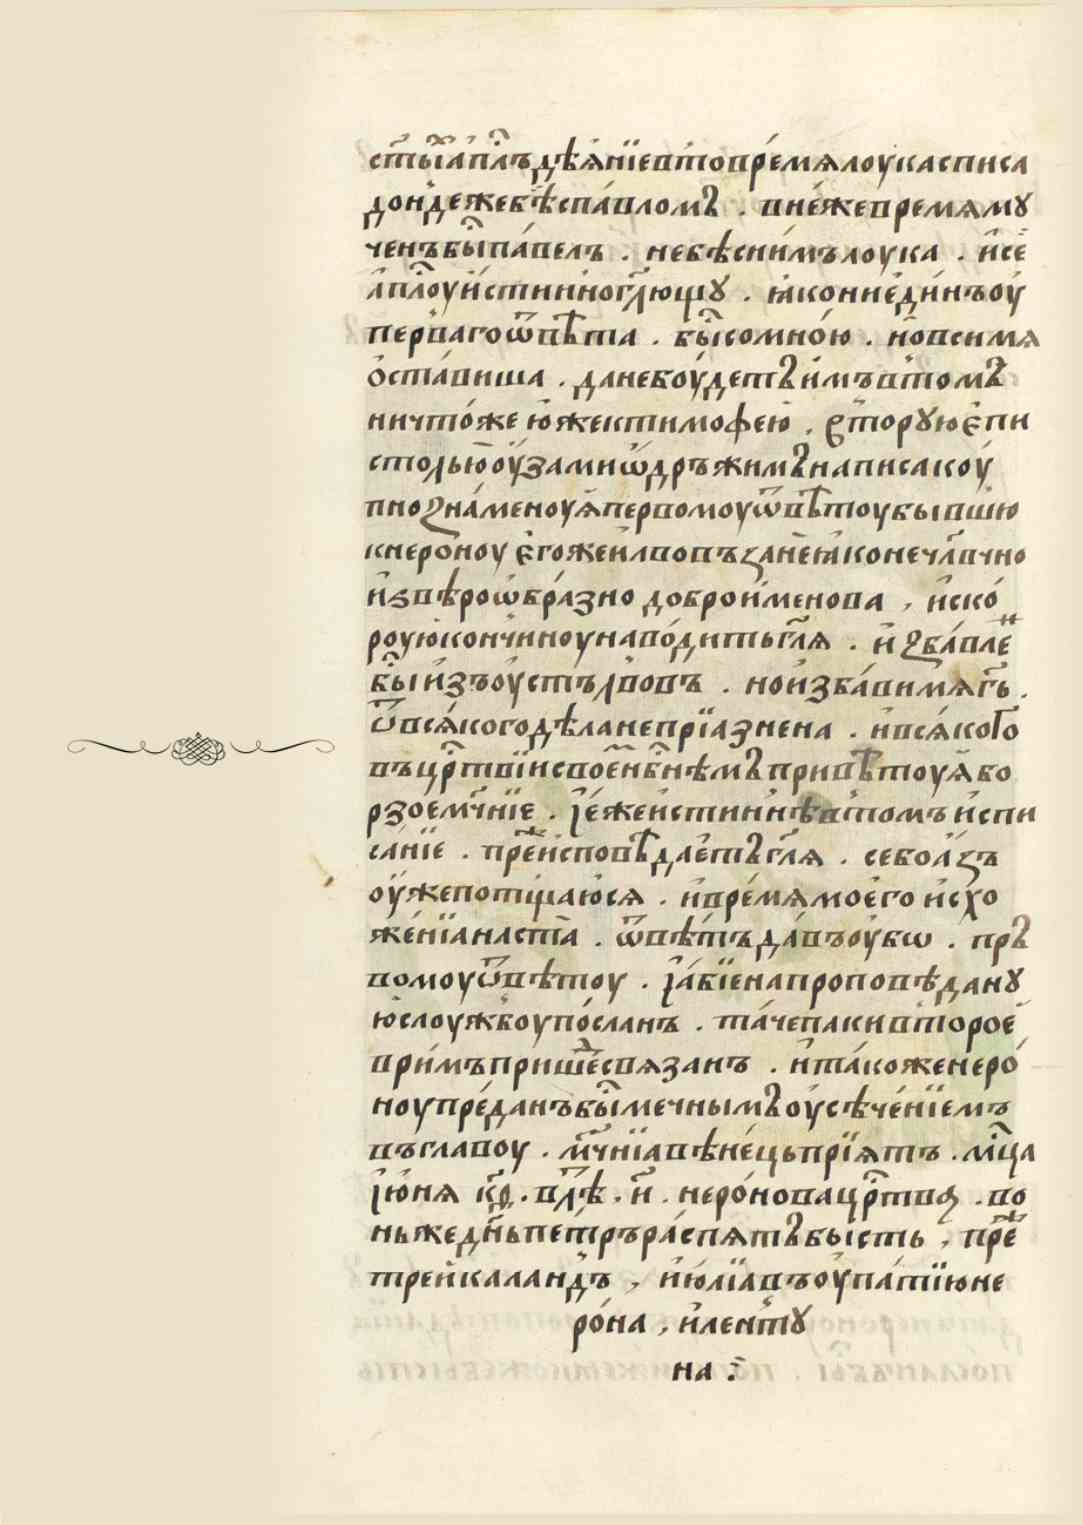 ст҃ы́ꙗ а҆пл҃ъ дѣѧ́нїе в то вре́мѧ лоука списа
дон́деже бѣ с па́вломъ . вне́же времѧ мꙋ
ченъ бы̑ па́велъ . не бѣ с ни́мъ лоука . и҆ се
а҆пл҃оу и҆́стинно гл҃ющꙋ . ꙗ҆ко ни є҆ди́нъ оу҆
перваго ѿвѣта . бы̑ со мно́ю . но̑ вси мѧ
ѻ҆ста́виша . да не боу́детъ и҆мъ в томъ
ничто́же ю҆же к тимофею̀ . вторꙋю є҆пи
столью̀ оу҆́зами ѡ҆дръжимъ написа коу́
пно зна́меноуѧ̀ первомоу ѿвѣтоу бывшю
к неро́ноу є҆гоже и҆ львовъ занѐ ꙗ҆ко нечл҃вчно
и҆ ѕвѣроѡбра́зно добро и҆менова , и҆ ско́
роую кончи́ноу наво́дитъ гл҃ѧ . и҆ збáвлен
бы̑ и҆зъ оу҆стъ львовъ . но и҆зба́ви мѧ гь҃ .
ѿ всѧ́кого дѣла непрїазнена . и҆ всѧ́кого
въ цр҃твїи свое҆м нб҃нѣмъ привѣтоуѧ̀ бо
рзое мч҃нїе . І҆́еже и҆стиннѣ в томъ и҆спи
са́нїе . пре́же и҆сповѣ́даетъ гл҃ѧ . се бо а҆́зъ
оу҆́же потщаю́сѧ . и҆ вре́мѧ моего̀ и҆схо
же́нїа наста̀ . ѿвѣ́тъ да́въ оу҆́бѡ . пръ
вомоу ѿвѣтоу . І҆а́бїе на проповѣданꙋ
ю҆ слоу́жбоу по́сланъ . та́че паки второе
в ри́мъ прише́д свѧзанъ . и҆ та́коже неро́
ноу пре́данъ бы̑ мечнымъ оу҆сѣче́нїемъ
въ главоу . мч҃нїа вѣне́ць прїѧтъ . мц҃а
І҆ю́нѧ кѳ҃ . в лѣ҃ . и҃ . неро́нова цр҃тва . во
ньже дн҃ь петръ ра́спѧтъ бы́сть , пре́ж
трей каландъ , и҆ю́лїа въ оу҆па́тїю не
ро́на , и҆ лентꙋ
на :